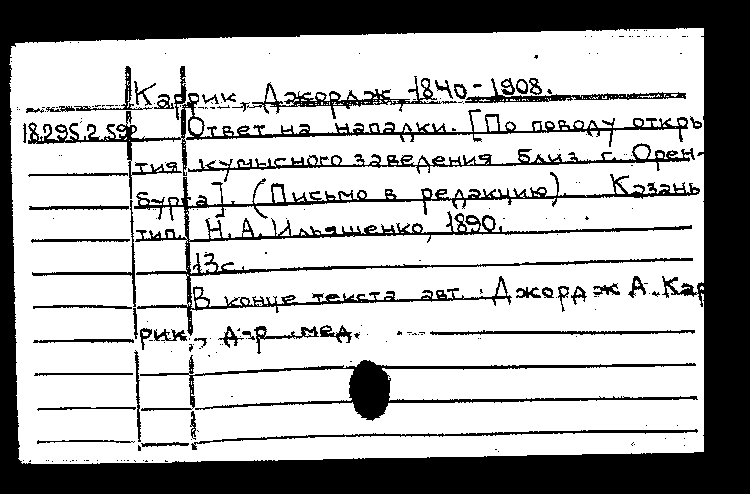 Каррик, Джордж, 1840-1908.
18.295.2.592 Ответ на нападки. [По поводу откры-
тия кумысного заведения близ г. Орен-
бурга]. (Письмо в редакцию). Казань
тип. Н. А. Ильяшенко, 1890.
13с.
В конце текста авт.: Джордж А. Кар
рик, д-р мед.